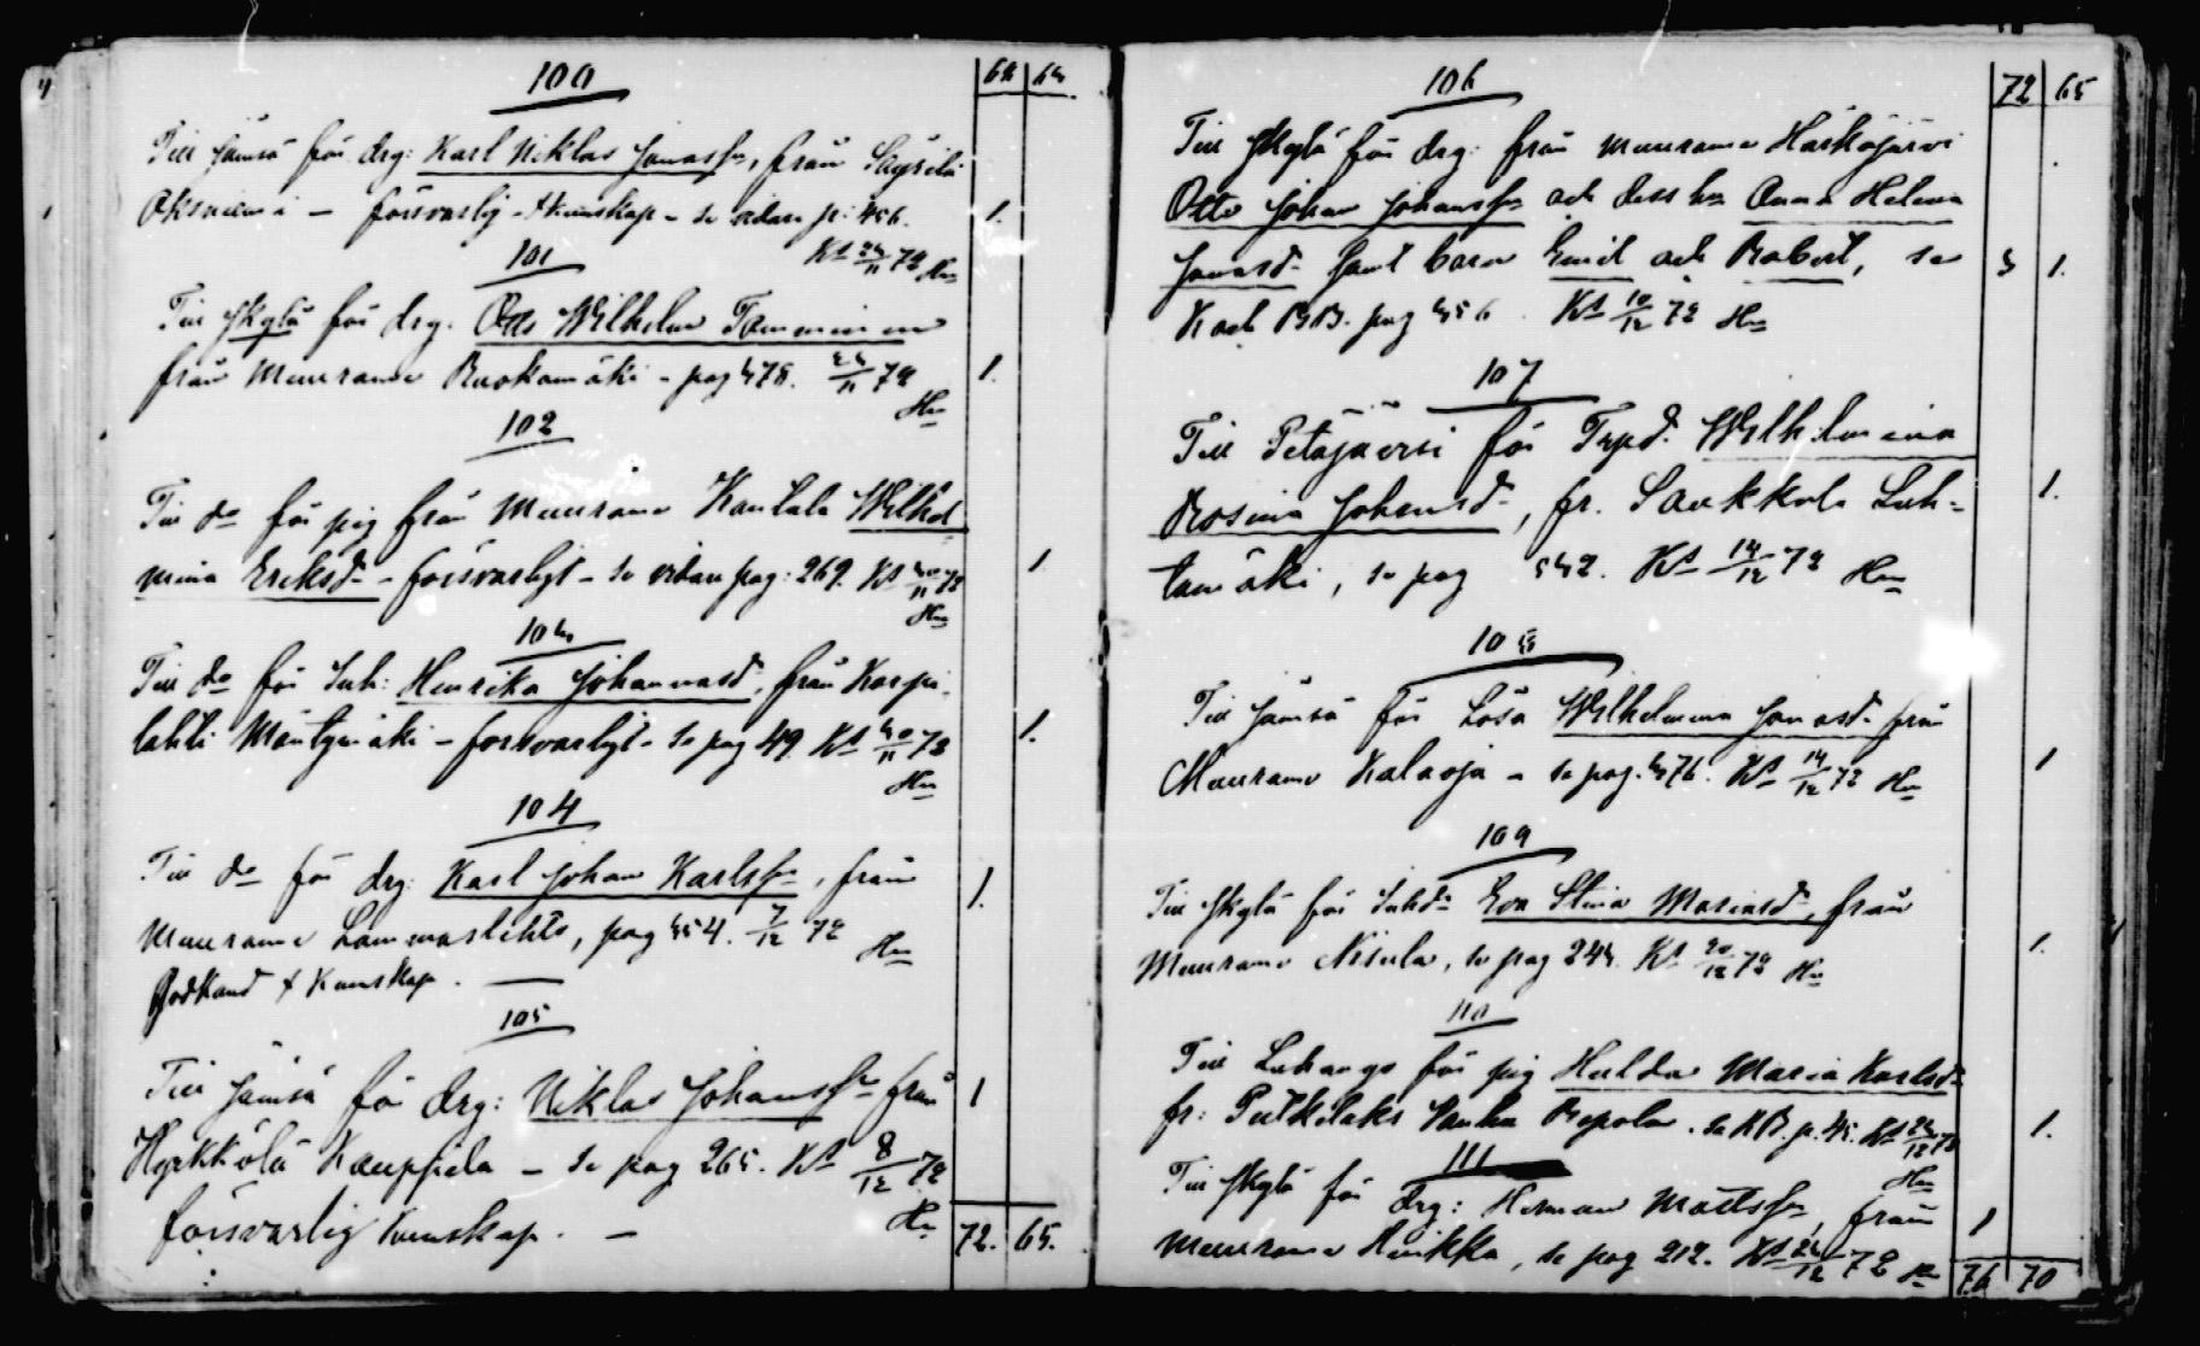 100
Till Jämsä för drg: Karl Niklas Jonass., från Säyrilä
Oksniemi - försvarlig X kunskap - se vidare p: 456. 1.
Ka 23/11 72 Hn
101
Till Jkylä för drg. Otto Wilhelm Tamminen
från Muurame Ruokomäki - pag 378. 23/11 72 1.
Hn
102
Till do för pig från Muurame Kautala Wilhel
mina Eriksd. - försvarligt - se vidare pag: 269. Ka 30/11 72 1
Hn
103
Till do för Inh: Henrika Johannasd. från Korpi-
lahti Mäntymäki - försvarligt - se pag 49. Ka 30/11 72 1.
Hn
104
Till do för drg: Karl Johan Karlss., från 1.
Muurame Lammaslehto, pag 354. 7/12 72 Hn
Godkänd X Kunskap. -
105
Till Jämsä för drg: Niklas Johanss. från 1
Hyrkkölä Kauppila - se pag 265. Ka 8/12 72
försvarlig kunskap. - Hn
72. 65.
106
72 65
Till Jkylä för drg: från Muurame Harkojärvi
Otto Johan Johanss. och dess h. Anna Helena
Jonasd. samt barn Emil och Robert, se 3 1.
K och BB. pag 356. Ka 10/12 72 Hn
107
Till Petäjävesi för Trpd. Wilhelmina
Rosina Johansd., fr. Saukkola Luh- 1.
tamäki, se pag 542. Ka 14/12 72 Hn
108
Till Jämsä för Lösa Wilhelmina Jonasd. från
Muurame Kalaoja - se pag. 376. Ka 14/12 72 Hn 1
109
Till Jkylä för Inhd. Eva Stina Mariasd., från
Muurame Nisula, se pag 243. Ka 20/12 72 Hn 1.
110
Till Luhango för pig Hulda Maria Karlsd.
fr: Putkilaks Vanha Repola. se KB. p. 45. Ka 23/12 72 1.
Hn
111
Till Jkylä för drg: Herman Mattss., från 1
Muurame Hinkka, se pag 212. Ka 24/12 72 Hn
76 70